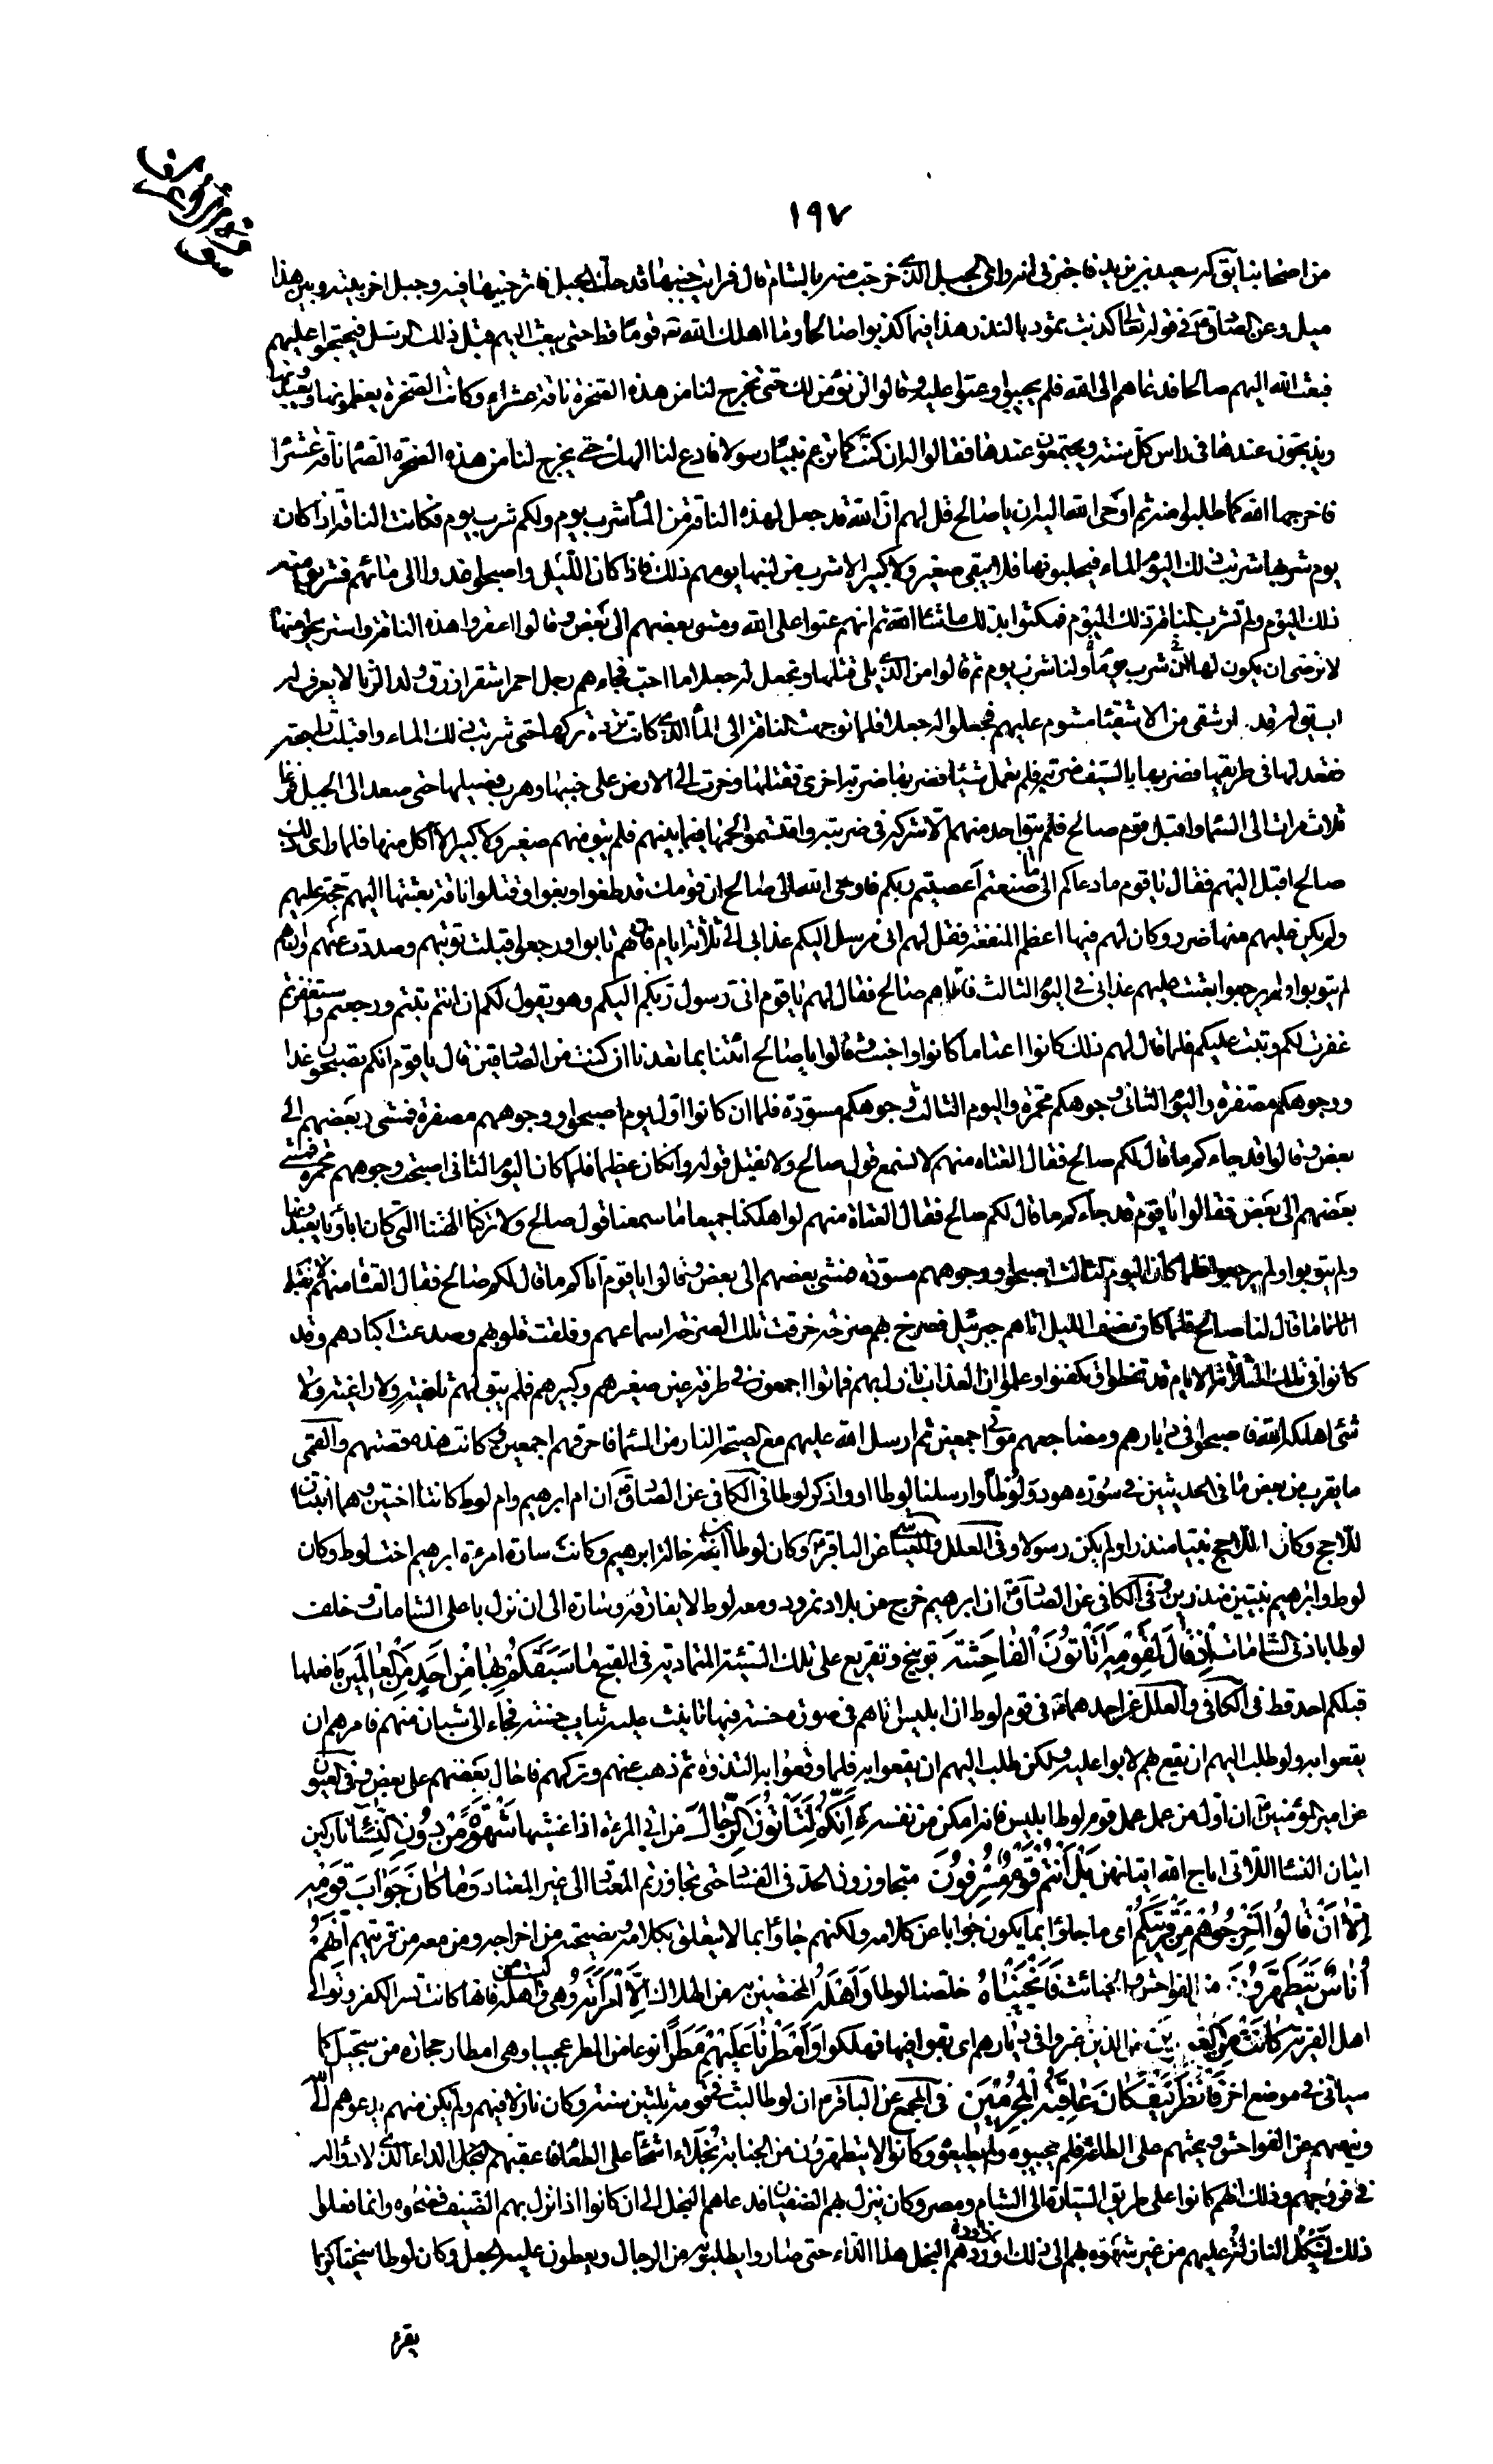 ١٩٧
من اصحابنا يق له سعيد بن يزيد فاخبرني انه راى الجبل الذي خرجت منه بالشام قال فرايت جنبها قد حك الجبل فاثر جنبها فيه وجبل اخر بينه وبين هذا
ميل وعن الصادق في قوله تعالى كذبت ثمود بالنذر هذا فيما كذبوا صالحا وما اهلك الله قوما قط حتى يبعث اليهم قبل ذلك الرسل فيحتجوا عليهم
فبعث الله اليهم صالحا فدعاهم الى الله فلم يجيبوا وعتوا عليه وقالوا لن نؤمن لك حتى تخرج لنا من هذه الصخرة ناقة عشراء وكانت الصخرة يعظمونها ويعبدونها
ويذبحون عندها في راس كل سنة ويجتمعون عندها فقالوا له ان كنت كما تزعم نبيا رسولا فادع لنا الهك حتى يخرج لنا من هذه الصخرة الصماء ناقة عشراء
فاخرجها الله كما طلبوا منه ثم اوحى الله اليه ان يا صالح قل لهم ان الله قد جعل لهذه الناقة من الماء شرب يوم ولكم شرب يوم فكانت الناقة اذا كان
يوم شربها شربت ذلك اليوم الماء فيحلبونها فلا يبقى صغير ولا كبير الا شرب من لبنها يومهم ذلك فاذا كان الليل واصبحوا غدوا الى مائهم فشربوا منه
ذلك اليوم ولم تشرب الناقة ذلك اليوم فمكثوا بذلك ما شاء الله ثم انهم عتوا على الله ومشى بعضهم الى بعض وقالوا اعقروا هذه الناقة واستريحوا منها
لا نرضى ان يكون لها شرب يوم ولنا شرب يوم ثم قالوا من الذي يلى قتلها ونجعل له جعلا ما احب فجاءهم رجل احمر اشقر ازرق ولد الزنا لا يعرف له
اب يق له قدار شقى من الاشقياء مشوم عليهم فجعلوا له جعلا فلما توجهت الناقة الى الماء الذي كانت ترده تركها حتى شربت ذلك الماء واقبلت راجعة
فقعد لها في طريقها فضربها بالسيف ضربة فلم يعمل شيئا فضربها ضربة اخرى فقتلها وخرت الى الارض على جنبها وهرب فصيلها حتى صعد الى الجبل فرغا
ثلاث مرات الى السماء واقبل قوم صالح فلم يبق احد منهم الا شركه في ضربته واقتسموا لحمها فيما بينهم فلم يبق منهم صغير ولا كبير الا اكل منها فلما راى ذلك
صالح اقبل اليهم فقال يا قوم ما دعاكم الى ما صنعتم اعصيتم ربكم فاوحى الله الى صالح ان قومك قد طغوا وبغوا وقتلوا ناقة بعثتها اليهم حجة عليهم
ولم يكن عليهم منها ضرر وكان لهم فيها اعظم المنفعة فقل لهم اني مرسل اليكم عذابي الى ثلاثة ايام فان هم تابوا ورجعوا قبلت توبتهم وصددت عنهم وان هم
لم يتوبوا ولم يرجعوا بعثت عليهم عذابي في اليوم الثالث فاتاهم صالح فقال لهم يا قوم اني رسول ربكم اليكم وهو يقول لكم ان انتم تبتم ورجعتم واستغفرتم
غفرت لكم وتبت عليكم فلما قال لهم ذلك كانوا اعتا ما كانوا واخبث وقالوا يا صالح ائتنا بما تعدنا ان كنت من الصادقين قال يا قوم انكم تصبحون غدا
ووجوهكم مصفرة واليوم الثاني وجوهكم محمرة واليوم الثالث وجوهكم مسودة فلما ان كانوا اول يوم اصبحوا ووجوههم مصفرة فمشى بعضهم الى
بعض وقالوا قد جاءكم ما قال لكم صالح فقال العتاة منهم لا نسمع قول صالح ولا نقبل قوله وان كان عظيما فلما كان اليوم الثاني اصبحت وجوههم محمرة فمشى
بعضهم الى بعض فقالوا يا قوم قد جاءكم ما قال لكم صالح فقال العتاة منهم لو اهلكنا جميعا ما سمعنا قول صالح ولا تركنا الهتنا التي كان اباؤنا يعبدونها
ولم يتوبوا ولم يرجعوا فلما كان اليوم الثالث اصبحوا ووجوههم مسودة فمشى بعضهم الى بعض وقالوا يا قوم اتاكم ما قال لكم صالح فقال العتاة منهم قد
اتانا ما قال لنا صالح فلما كان نصف الليل اتاهم جبرئيل فصرخ بهم صرخة خرقت تلك الصرخة اسماعهم وفلقت قلوبهم وصدعت اكبادهم وقد
كانوا في تلك الثلاثة الايام قد تحنطوا وتكفنوا وعلموا ان العذاب نازل بهم فماتوا اجمعون في طرفة عين صغيرهم وكبيرهم فلم يبق لهم ثاغية ولا راغية ولا
شئ الا اهلكه الله فاصبحوا في ديارهم ومضاجعهم موتى اجمعين ثم ارسل الله عليهم مع الصيحة النار من السماء فاحرقهم اجمعين وكانت هذه قصتهم والقمى
ما يقرب من بعض ما في الحديثين في سورة هود ولوطا وارسلنا لوطا او واذكر لوطا في الكافي عن الصادق ان ام ابرهيم وام لوط كانتا اختين وهما ابنتان
للاحج وكان اللاحج نبيا منذرا ولم يكن رسولا وفي العلل والعياشي عن الباقر وكان لوط ابن خالة ابرهيم وكانت سارة امرءة ابرهيم اخت لوط وكان
لوط وابرهيم نبيين منذرين وفي الكافي عن الصادق ان ابرهيم خرج من بلاد نمرود ومعه لوط لا يفارقه وسارة الى ان نزل باعلى الشامات وخلف
لوطا بادنى الشامات اذ قال لقومه اتاتون الفاحشة توبيخ وتقريع على تلك السيئة المتمادية في القبح ما سبقكم بها من احد من العالمين ما فعلها
قبلكم احد قط في الكافي والعلل عن احدهما في قوم لوط ان ابليس اتاهم في صورة حسنة فيها تانيث عليه ثياب حسنة فجاء الى شبان منهم فامرهم ان
يقعوا به ولو طلب اليهم ان يقع بهم لابوا عليه ولكن طلب اليهم ان يقعوا به فلما وقعوا به التذوه ثم ذهب عنهم وتركهم فاحال بعضهم على بعض وفي العيون
عن امير المؤمنين ان اول من عمل عمل قوم لوط ابليس فانه امكن من نفسه ءانكم لتاتون الرجال من اتى المرءة اذا غشيها شهوة من دون النساء تاركين
اتيان النساء اللاتى اباح الله اتيانهن بل انتم قوم مسرفون متجاوزون الحد في الفساد حتى تجاوزتم المعتاد الى غير المعتاد وما كان جواب قومه
الا ان قالوا اخرجوهم من قريتكم اى ما جاؤا بما يكون جوابا عن كلامه ولكنهم جاؤا بما لا يتعلق بكلامه ونصيحته من اخراجه ومن معه من قريتهم انهم
اناس يتطهرون من الفواحش والخبائث فانجيناه خلصنا لوطا واهله المختصين به من الهلاك الا امراته وهي واهلة فانها كانت تسر الكفر وتوالى
اهل القرية كانت من الغابرين من الذين غبروا في ديارهم اى بقوا فيها فهلكوا وامطرنا عليهم مطرا نوعا من المطر عجيبا وهى امطار حجارة من سجيل كما
سياتى في موضع اخر فانظر كيف كان عاقبة المجرمين في المجمع عن الباقر ان لوطا لبث في قومه ثلثين سنة وكان نازلا فيهم ولم يكن منهم يدعوهم الى الله
وينهيهم عن الفواحش ويحثهم على الطاعة فلم يجيبوه ولم يطيعوه وكانوا لا يتطهرون من الجنابة بخلاء اشحاء على الطعام فاعقبهم البخل الداء الذي لا دواء له
في فروجهم وذلك انهم كانوا على طريق السيارة الى الشام ومصر وكان ينزل بهم الضيفان فدعاهم البخل الى ان كانوا اذا نزل بهم الضيف فضحوه وانما فعلوا
ذلك لتنكل النازلة عليهم من غير شهوة بهم الى ذلك فاوردهم البخل هذا الداء حتى صاروا يطلبونه من الرجال ويعطون عليه الجعل وكان لوط سخيا كريما
يقرى